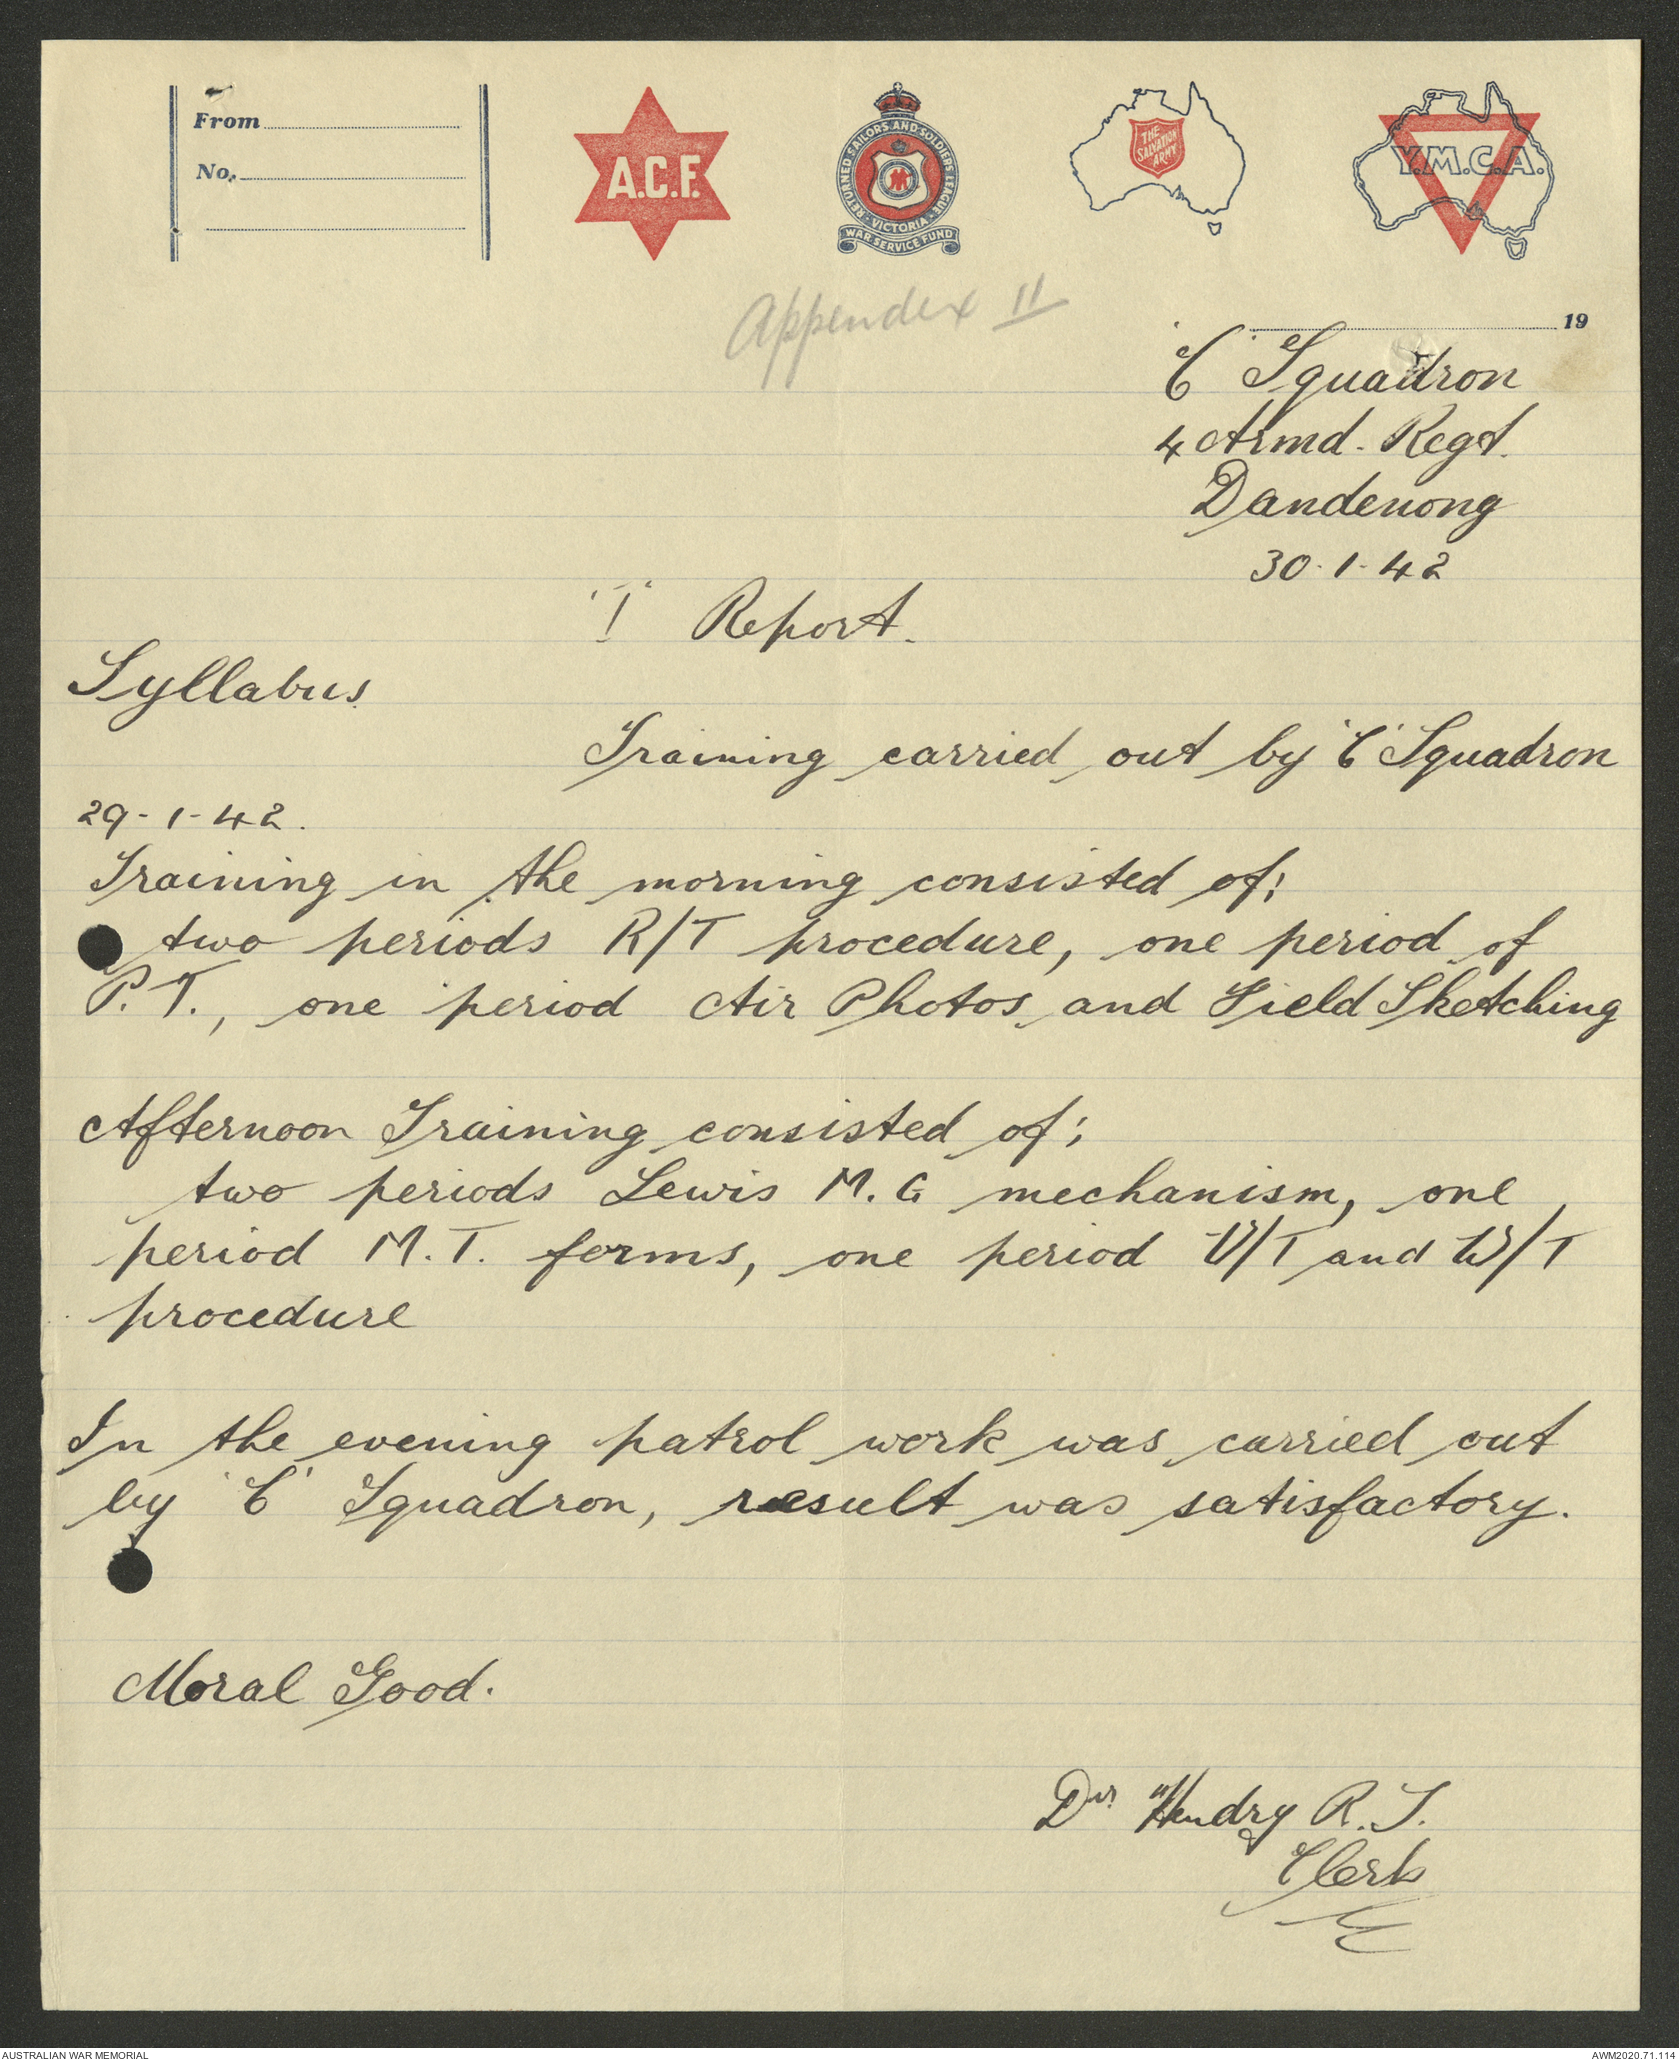 From
No.
A.C.F.
RETURNED SAILORS AND SOLDIERS LEAGUE
VICTORIA
WAR SERVICE FUND
THE
SALVATION
ARMY
Y.M.C.A.
Appendex II
19
'C' Squadron
4 Armd. Regt.
Dandenong
30.1.42
'I' Report.
Syllabus
Training carried out by 'C' Squadron
29-1-42.
Training in the morning consisted of;
two periods R/T procedure, one period of
P.T., one period Air Photos and Field Sketching
Afternoon Training consisted of;
two periods Lewis M.G mechanism, one
period M.T. forms, one period V/T and W/T
procedure
In the evening patrol work was carried out
by 'C' Squadron, result was satisfactory.
Moral Good.
Dvr Hendry R.J.
Clerk
AUSTRALIAN WAR MEMORIAL
AWM2020.71.114